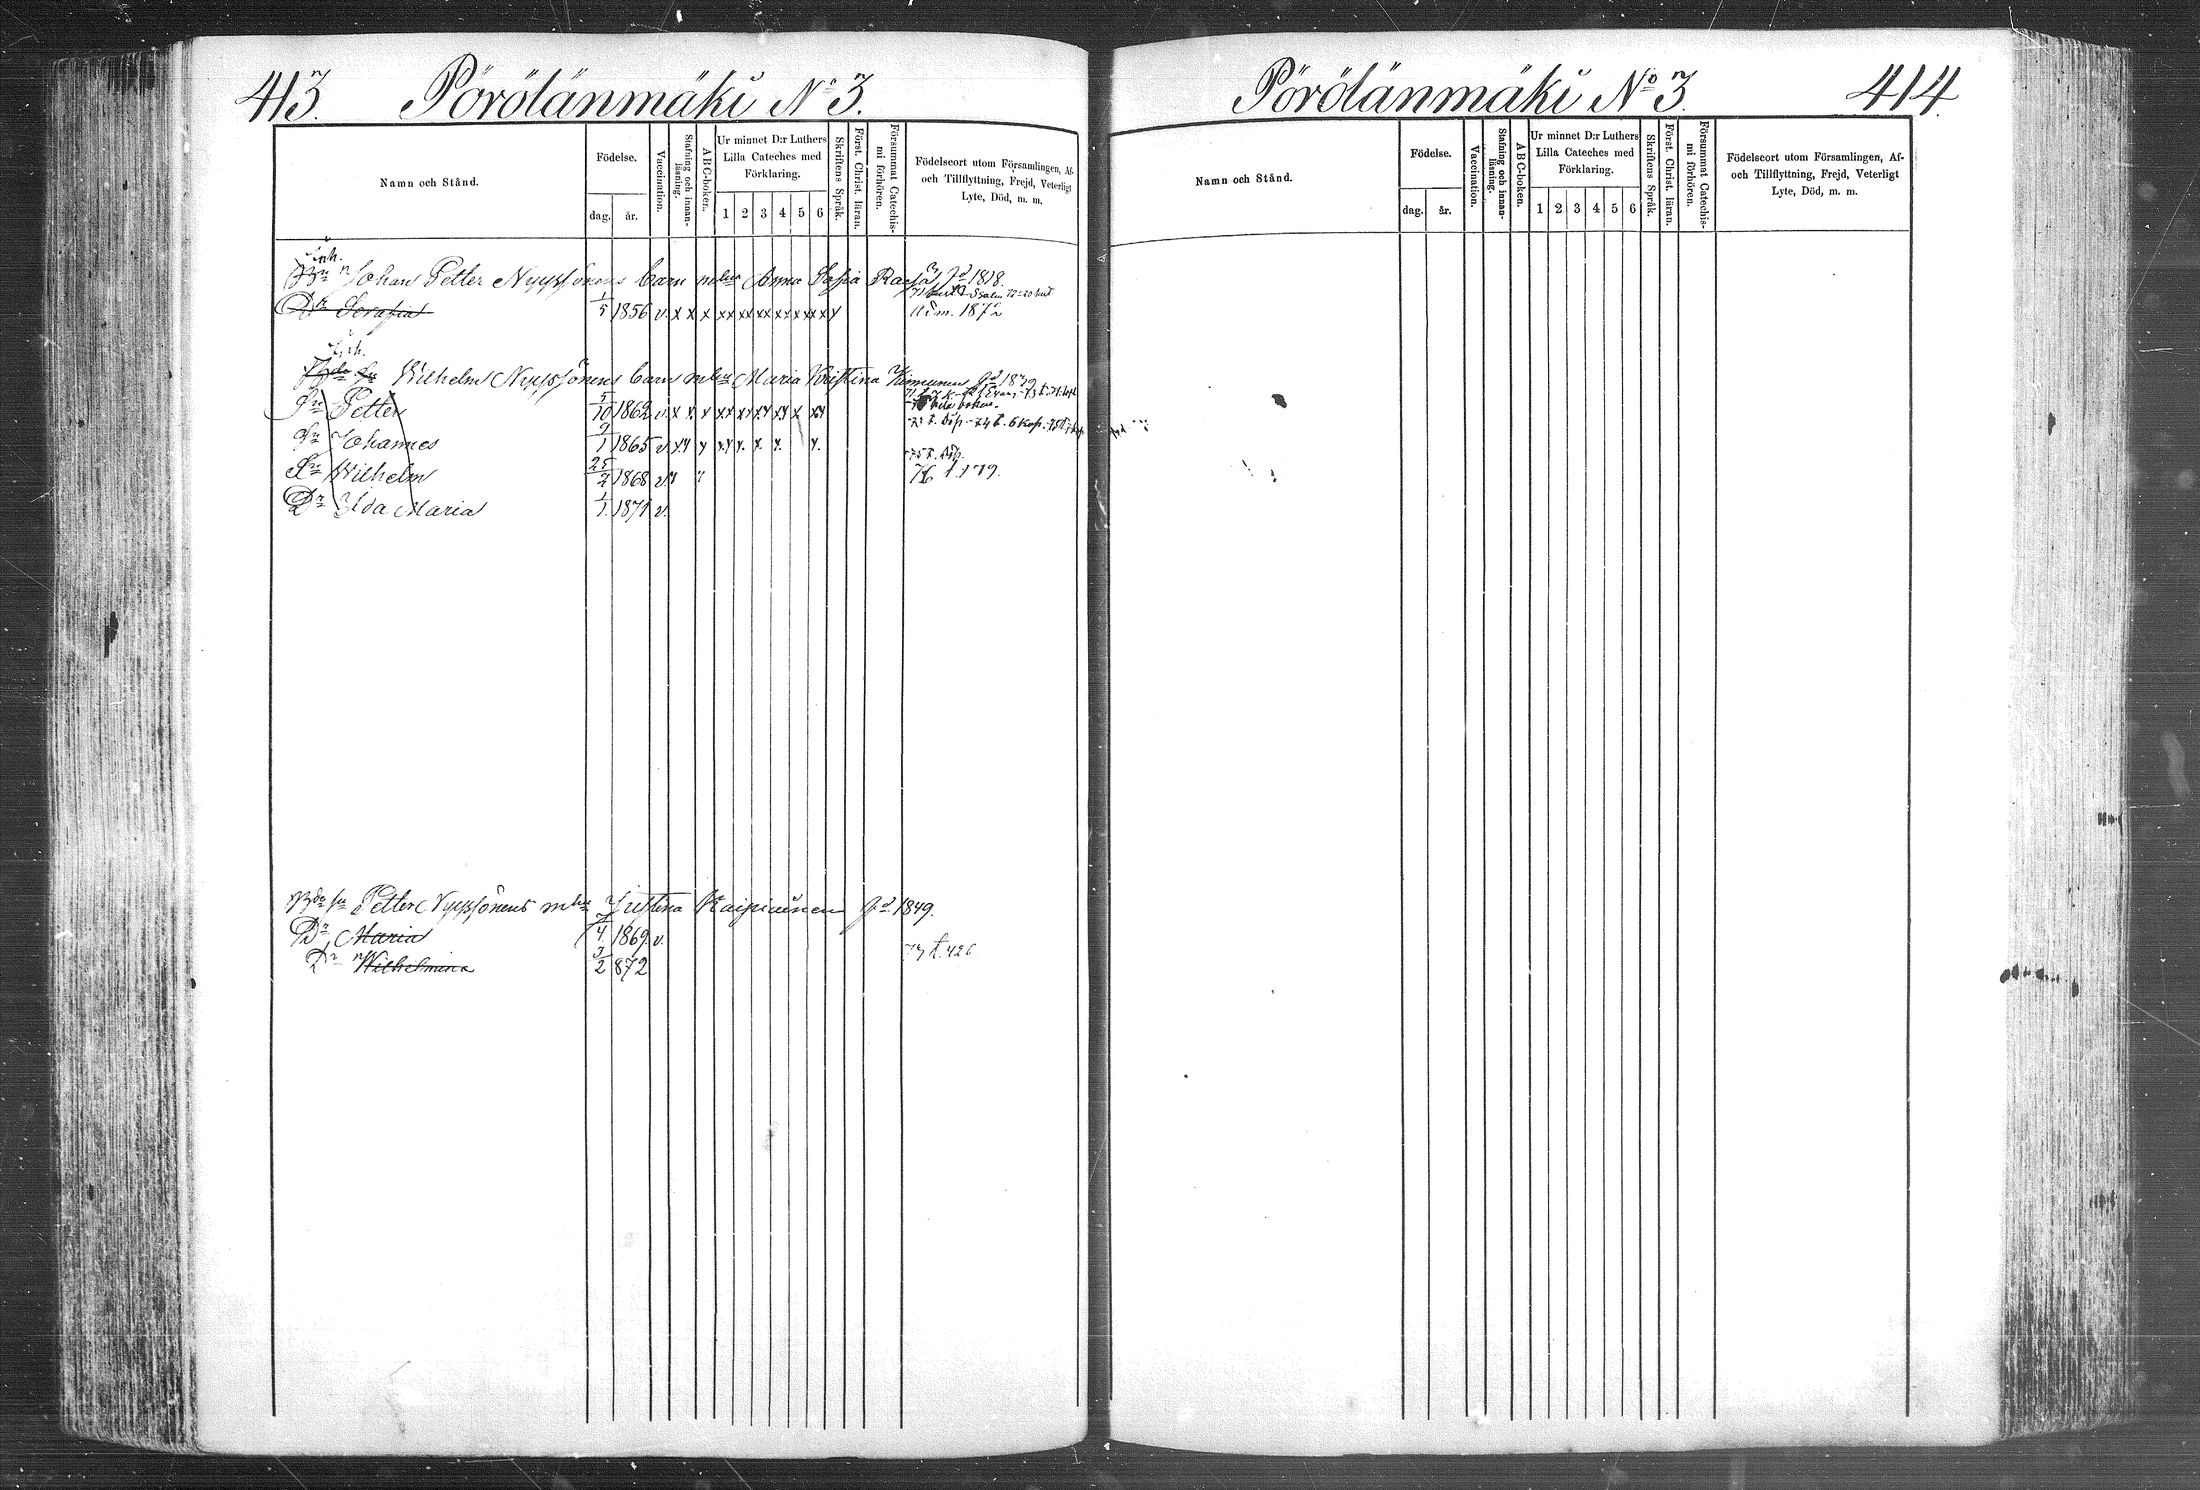 413. Pörölänmäki No 3.
Namn och Stånd.
Födelse.
dag. år.
Vaccination.
Stafning och innanläsning.
ABC-boken.
Ur minnet D:r Luthers
Lilla Cateches med
Förklaring.
1 2 3 4 5 6
Skriftens Språk.
Först. Christ. läran.
Försummat Catechismi förhören.
Födelseort utom Församlingen, Af-
och Tillflyttning, Frejd, Veterligt
Lyte, Död, m. m.
Inh.
Johan Petter Nyyssönens barn m. Anna Sofia f. 1818.
Dr Serafia 1/5 1856 v. x x x xx xx xx xx x xx x
Adm. 1872
Inh.
Wilhelm Nyyssönens barn m. Maria Kristina Kinnunen f. 1839
Sn Petter 5/10 1862 v. x x x xx xx xx xx x xx
hela boken.
Sn Johannes 9/1 1865 v.
Sn Wilhelm 1868 v.
76 t. 179.
Dr Ida Maria 1/1 1871 v.
Petter Nyyssönens m. Justina Kaipiainen f. 1849.
Dr Maria 1869 v.
Dr Wilhelmina 3/2 872
73 t. 426
Pörölänmäki No 3. 414.
Namn och Stånd.
Födelse.
dag. år.
Vaccination.
Stafning och innanläsning.
ABC-boken.
Ur minnet D:r Luthers
Lilla Cateches med
Förklaring.
1 2 3 4 5 6
Skriftens Språk.
Först. Christ. läran.
Försummat Catechismi förhören.
Födelseort utom Församlingen, Af-
och Tillflyttning, Frejd, Veterligt
Lyte, Död, m. m.